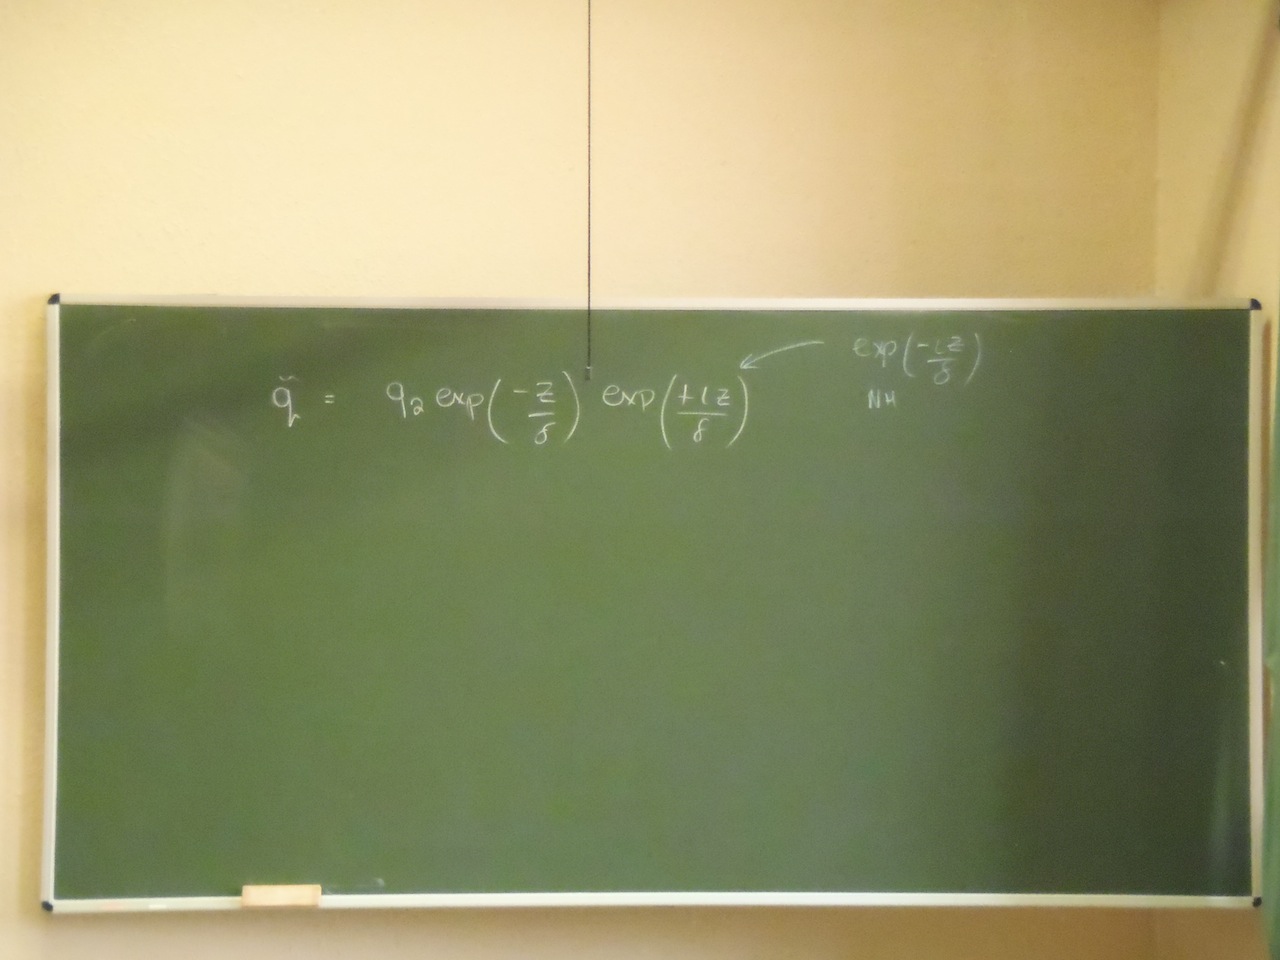 q̌ = q₂ exp(-z/δ) exp(+iz/δ)
exp(-iz/δ)
NH